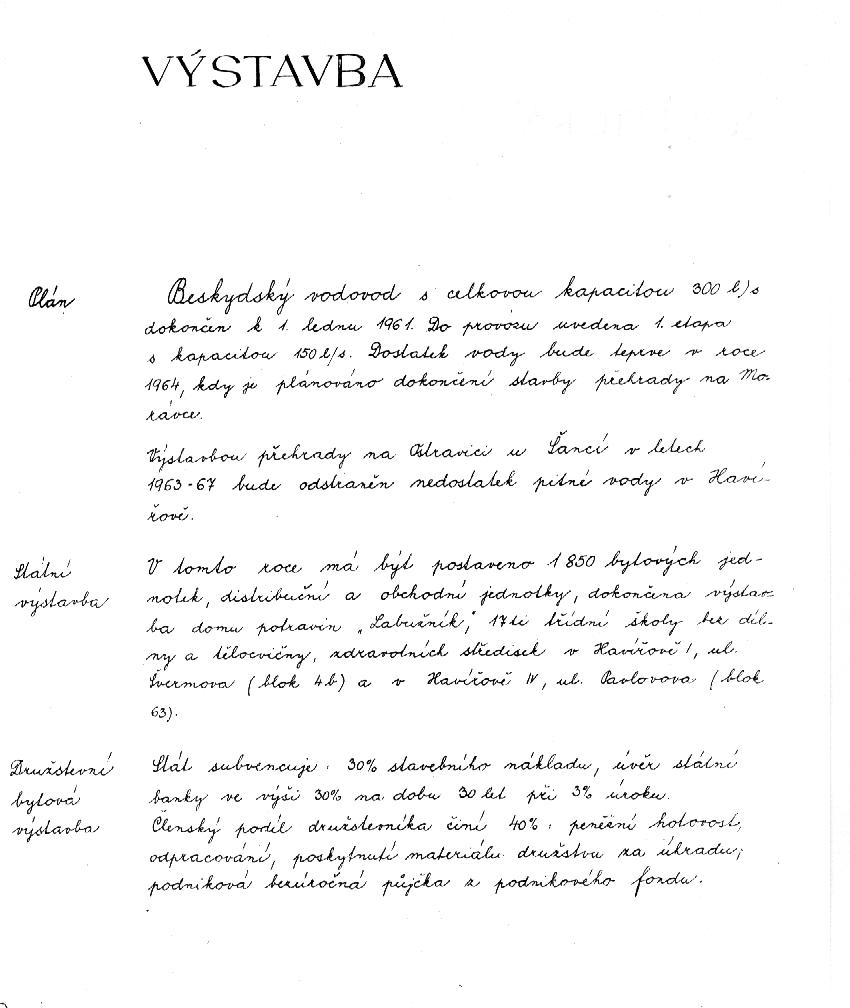 VÝSTAVBA
Plán
Beskydský vodovod s celkovou kapacitou 300 l/s
dokončen k 1. lednu 1961. Do provozu uvedena 1. etapa
s kapacitou 150 l/s. Dostatek vody bude teprve v roce
1964, kdy je plánováno dokončení stavby přehrady na Mo-
rávce.
Výstavbou přehrady na Ostravici u Šancí v letech
1963-67 bude odstraněn nedostatek pitné vody v Haví-
řově.
Státní
výstavba
V tomto roce má být postaveno 1 850 bytových jed-
notek, distribuční a obchodní jednotky, dokončena výstav-
ba domu potravin „Labužník," 17ti třídní školy bez díl-
ny a tělocvičny, zdravotních středisek v Havířově I, ul.
Švermova (blok 4b) a v Havířově IV, ul. Pavlovova (blok
63).
Družstevní
bytová
výstavba
Stát subvencuje: 30% stavebního nákladu, úvěr státní
banky ve výši 30% na dobu 30 let při 3% úroku.
Členský podíl družstevníka činí 40%: peněžní hotovost,
odpracování, poskytnutí materiálu družstvu za úhradu,
podniková bezúročná půjčka z podnikového fondu.